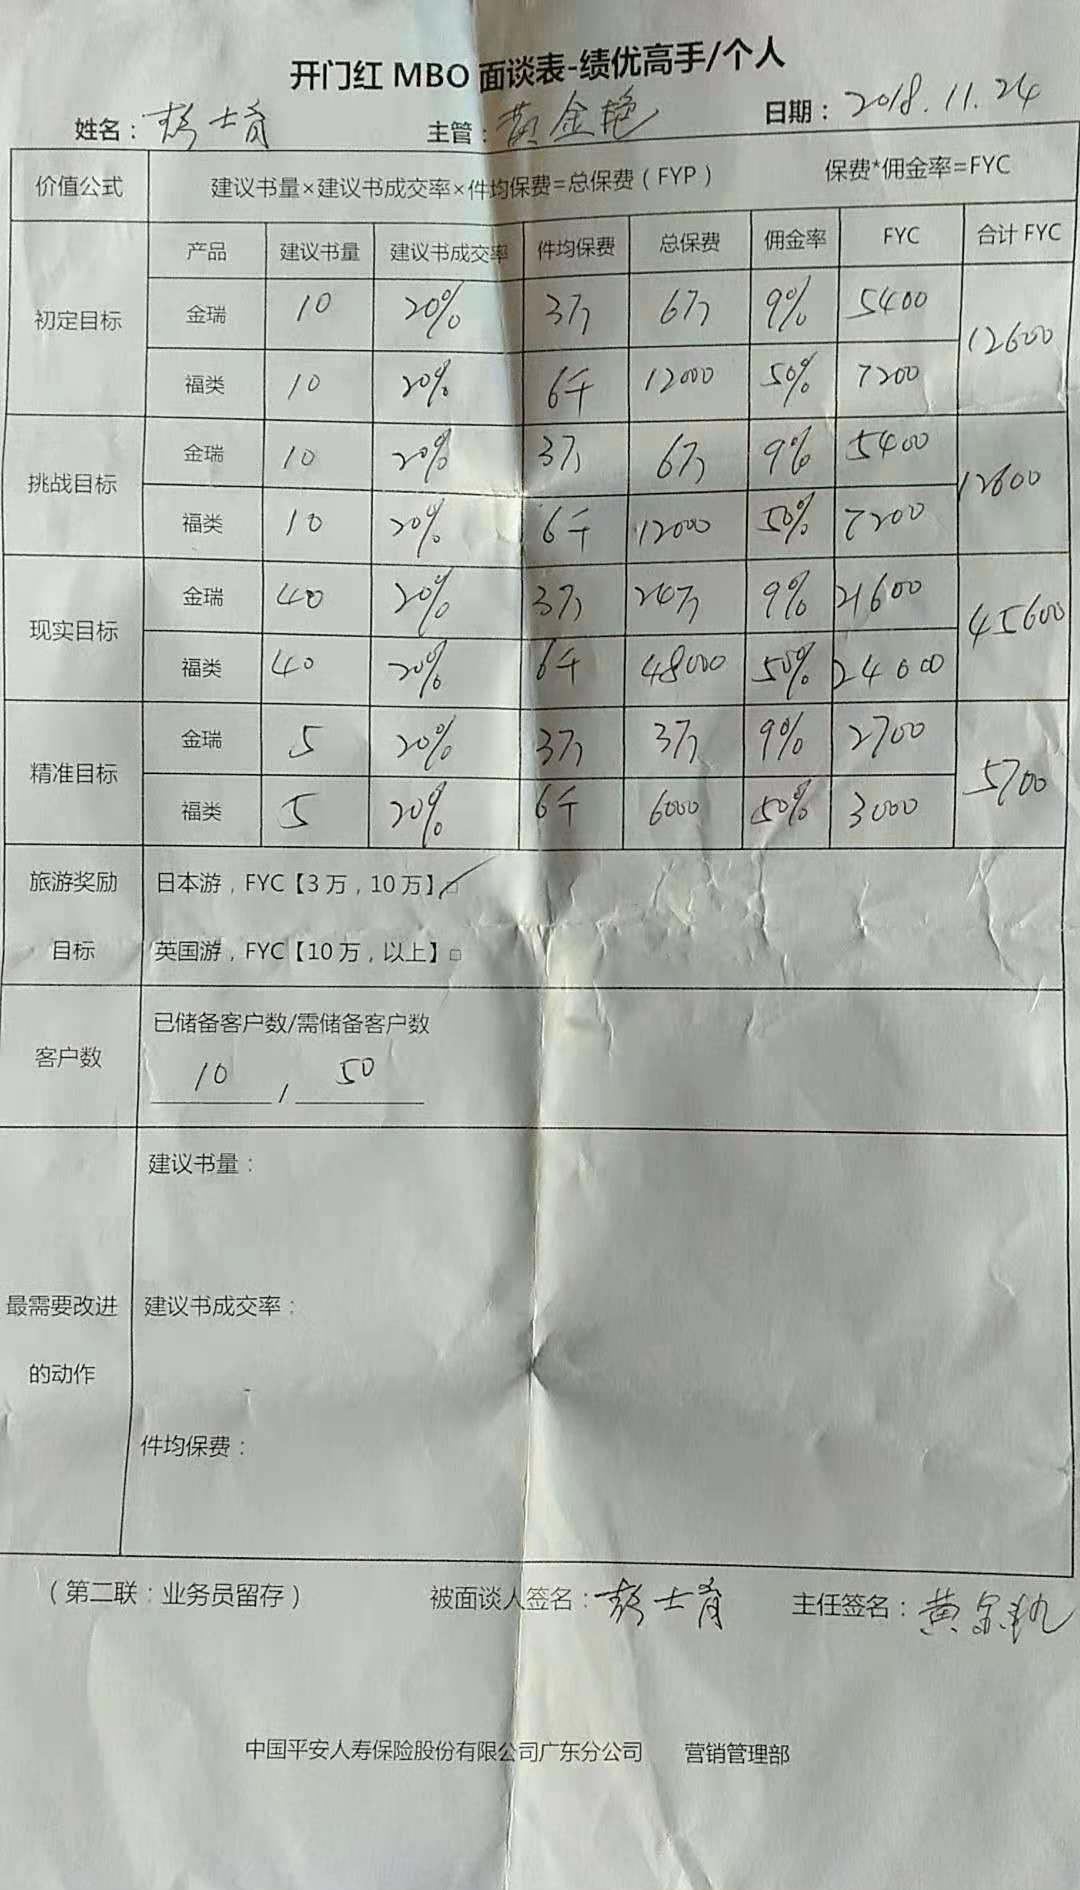 开门红 MBO 面谈表-绩优高手/个人
姓名：彭士育 主管：黄金艳 日期：2018.11.24
价值公式 建议书量×建议书成交率×件均保费=总保费（FYP） 保费*佣金率=FYC
产品 建议书量 建议书成交率 件均保费 总保费 佣金率 FYC 合计 FYC
初定目标 金瑞 10 20% 3万 6万 9% 5400 12600
福类 10 20% 6千 12000 50% 7200
挑战目标 金瑞 10 20% 3万 6万 9% 5400 12600
福类 10 20% 6千 12000 50% 7200
现实目标 金瑞 40 20% 3万 24万 9% 21600 45600
福类 40 20% 6千 48000 50% 24000
精准目标 金瑞 5 20% 3万 3万 9% 2700 5700
福类 5 20% 6千 6000 50% 3000
旅游奖励目标 日本游，FYC【3万，10万】☑
英国游，FYC【10万，以上】□
客户数 已储备客户数/需储备客户数
10 / 50
最需要改进的动作 建议书量：
建议书成交率：
件均保费：
（第二联：业务员留存） 被面谈人签名：彭士育 主任签名：黄
中国平安人寿保险股份有限公司广东分公司 营销管理部